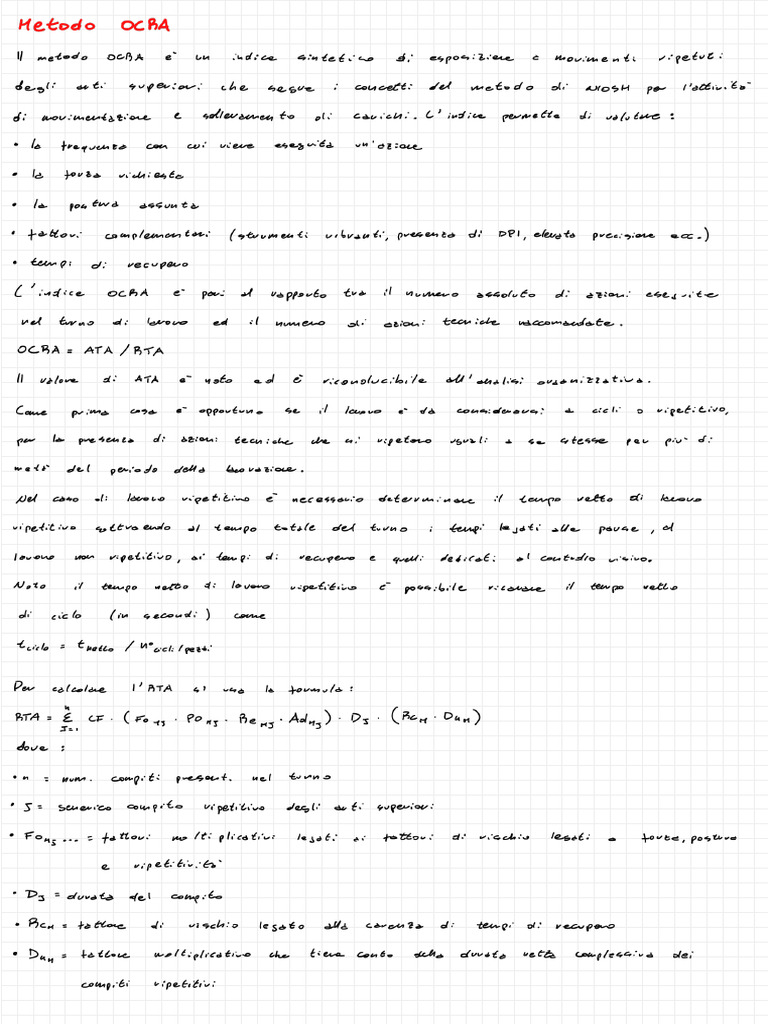 Metodo OCRA
Il metodo OCRA è un indice sintetico di esposizione a movimenti ripetuti
degli arti superiori che segue i concetti del metodo di NIOSH per l'attività
di movimentazione e sollevamento di carichi. L'indice permette di valutare :
• la frequenza con cui viene eseguita un'azione
• la forza richiesta
• la postura assunta
• fattori complementari (strumenti vibranti, presenza di DPI, elevata precisione ecc.)
• tempi di recupero
L'indice OCRA è pari al rapporto tra il numero assoluto di azioni eseguite
nel turno di lavoro ed il numero di azioni tecniche raccomandate.
OCRA = ATA / RTA
Il valore di ATA è noto ed è riconducibile all'analisi organizzativa.
Come prima cosa è opportuno se il lavoro è da considerarsi a cicli o ripetitivo,
per la presenza di azioni tecniche che si ripetono uguali a se stesse per più di
metà del periodo della lavorazione.
Nel caso di lavoro ripetitivo è necessario determinare il tempo netto di lavoro
ripetitivo sottraendo al tempo totale del turno i tempi legati alle pause, al
lavoro non ripetitivo, ai tempi di recupero e quelli dedicati al controllo visivo.
Noto il tempo netto di lavoro ripetitivo è possibile ricavare il tempo netto
di ciclo (in secondi) come
t ciclo = t netto / n° cicli/pezzi
Per calcolare l'RTA si usa la formula :
RTA = Σ n J=1 CF · (Fo MJ · Po MJ · Re MJ · Ad MJ) · DJ · (Rc M · Du M)
dove :
• n = num. compiti present. nel turno
• J = generico compito ripetitivo degli arti superiori
• Fo MJ ... = fattori moltiplicativi legati ai fattori di rischio legati a forza, postura
e ripetitività
• DJ = durata del compito
• Rc M = fattore di rischio legato alla carenza di tempi di recupero
• Du M = fattore moltiplicativo che tiene conto della durata netta complessiva dei
compiti ripetitivi